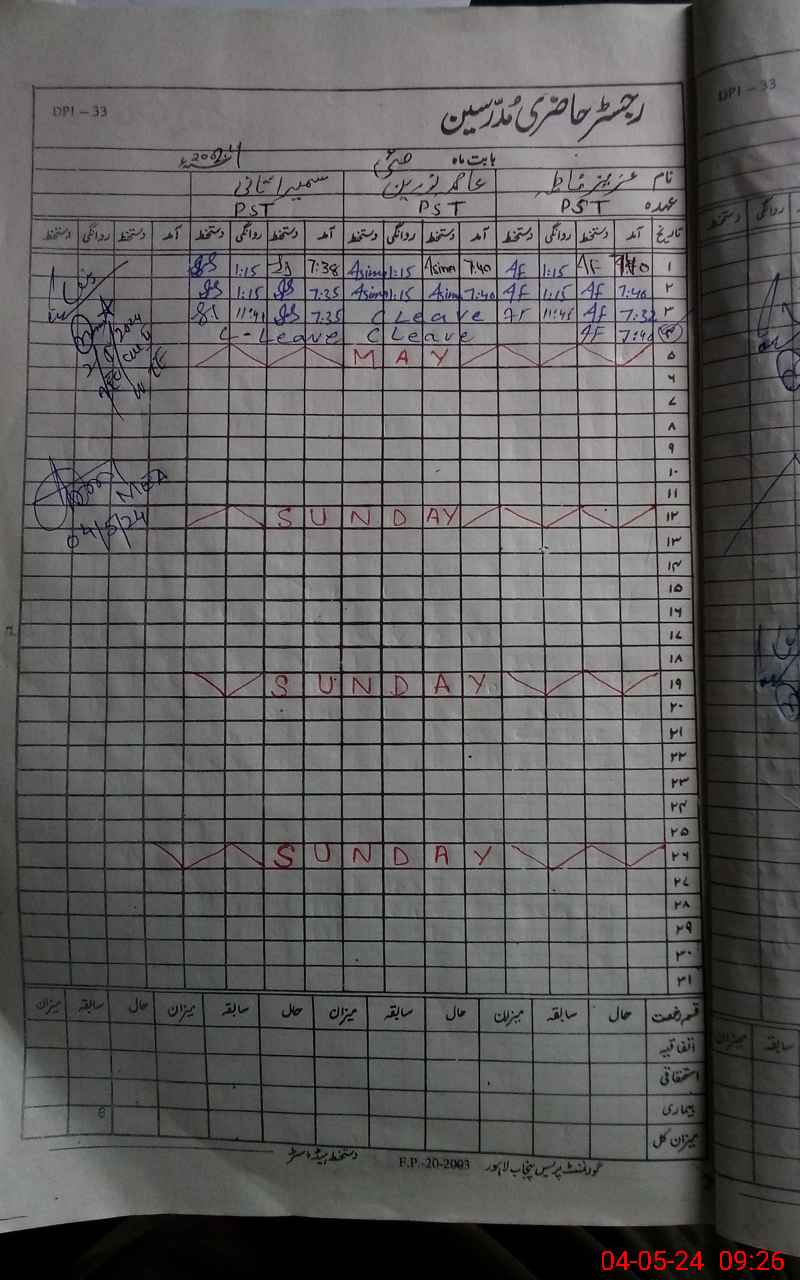 DPI – 33
DPI – 33
رجسٹر حاضری مُدرّسین
بابت ماہ مئی
نام عزیز فاطمہ
عہدہ PST PST PST
تاریخ آمد دستخط روانگی دستخط آمد دستخط روانگی دستخط آمد دستخط روانگی دستخط آمد دستخط روانگی دستخط
روانگی دستخط
۱ 7:40 AF 1:15 AF 7:40 Asima 1:15 Asima 7:38 1:15
۲ 7:40 AF 1:15 AF 7:40 Asima 1:15 Asima 7:35 1:15
۳ 7:32 AF 11:45 AF C Leave 7:35 11:41
۴ 7:40 AF C Leave C-Leave
۵ MAY
۶
۷
۸
۹
۱۰
۱۱
۱۲ SUNDAY
۱۳
۱۴
۱۵
۱۶
۱۷
۱۸
۱۹ SUNDAY
۲۰
۲۱
۲۲
۲۳
۲۴
۲۵
۲۶ SUNDAY
۲۷
۲۸
۲۹
۳۰
۳۱
MEA
04/5/24
قسم رخصت حال سابقہ میزان حال سابقہ میزان حال سابقہ میزان حال سابقہ میزان
سابقہ میزان
اتفاقیہ
استحقاقی
بیماری
میزان کل
دستخط ہیڈ ماسٹر
گورنمنٹ پریس پنجاب لاہور F.P.-20-2003
04-05-24 09:26